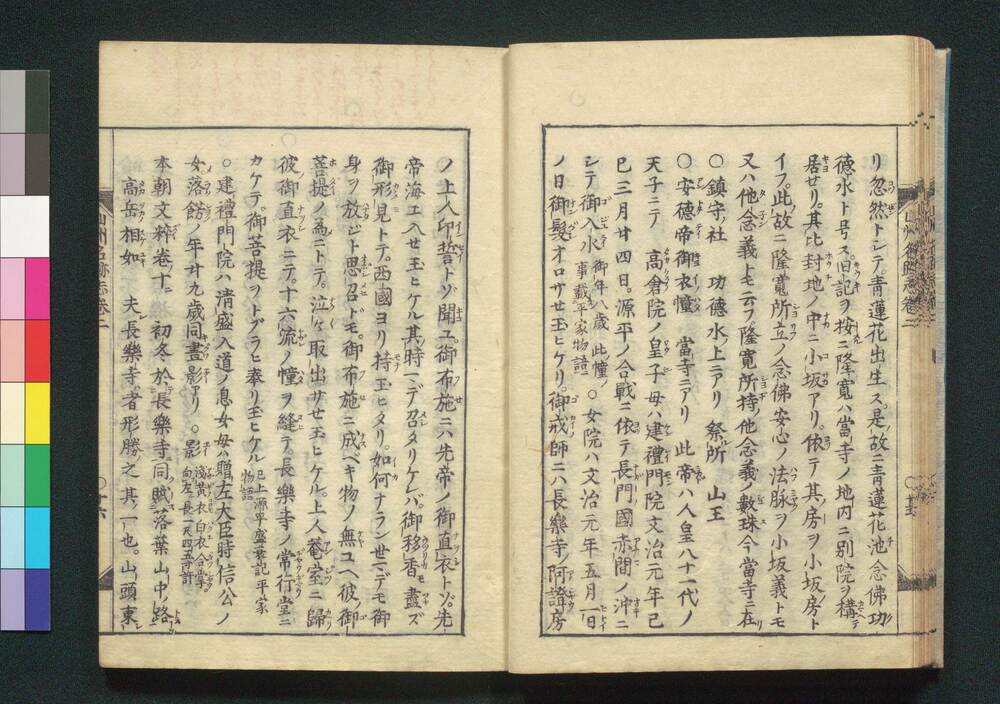 リ忽然トシテ青蓮花出生ス。是ノ故ニ青蓮花池念佛功
徳水ト号ス。旧記ヲ按ニ隆寛ハ當寺ノ地内ニ別院ヲ構
居セリ。其比封地ノ中ニ小坂アリ。依テ其ノ房ヲ小坂ノ房ト
イフ。此故ニ隆寛所立ノ念佛安心ノ法脉ヲ小坂義トモ
又ハ他念義トモ云フ隆寛所持ノ他念義ノ數珠今當寺ニ在リ
〇鎮守ノ社 功徳水ノ上ニアリ 祭所 山王
〇安徳帝ノ御衣幢 當寺ニアリ 此帝ハ人皇八十一代ノ
天子ニテ 高倉院ノ皇子母ハ建禮門院文治元年己
巳三月廿四日。源平ノ合戰ニ依テ長門國赤間ノ沖ニ
シテ御入水 御年八歳 此幢ノ事載平家物語 〇女院ハ文治元年五月一日
ノ日御髮オロサセ玉ヒケリ。御戒師ニハ長樂寺ノ阿證房
ノ上人印誓トゾ聞ユ。御布施ニハ先帝ノ御直衣トゾ。先
帝海ニ入セ玉ヒケル其ノ時マデ召タリケレバ。御移香モ盡ズ
御形見トテ。西國ヨリ持玉ヒタリ。如何ナラン世マデモ御
身ヲ放ジト思召ドモ。御布施ニ成ベキ物ノ無ユヘ彼ノ御
菩提ノ為ニトテ。泣々取出サセ玉ヒケル。上人菴室ニ歸リ
彼御直衣ニテ。十六流ノ幢ヲ縫テ。長樂寺ノ常行堂ニ
カケテ。御菩提ヲトブラヒ奉リ玉ヒケル 已上源平盛衰記平家物語
〇建禮門院ハ清盛入道ノ息女母ハ贈左大臣時信公ノ
女落餝ノ年廾九歳同畫影アリ 〇影 淺黄衣白衣合掌向左長一尺四五寸許
本朝文粹卷十ニ 初冬於長樂寺同賦落葉山中路
高岳相如 夫長樂寺者形勝之其一也。山頭東
山州名跡志卷二
〇十六